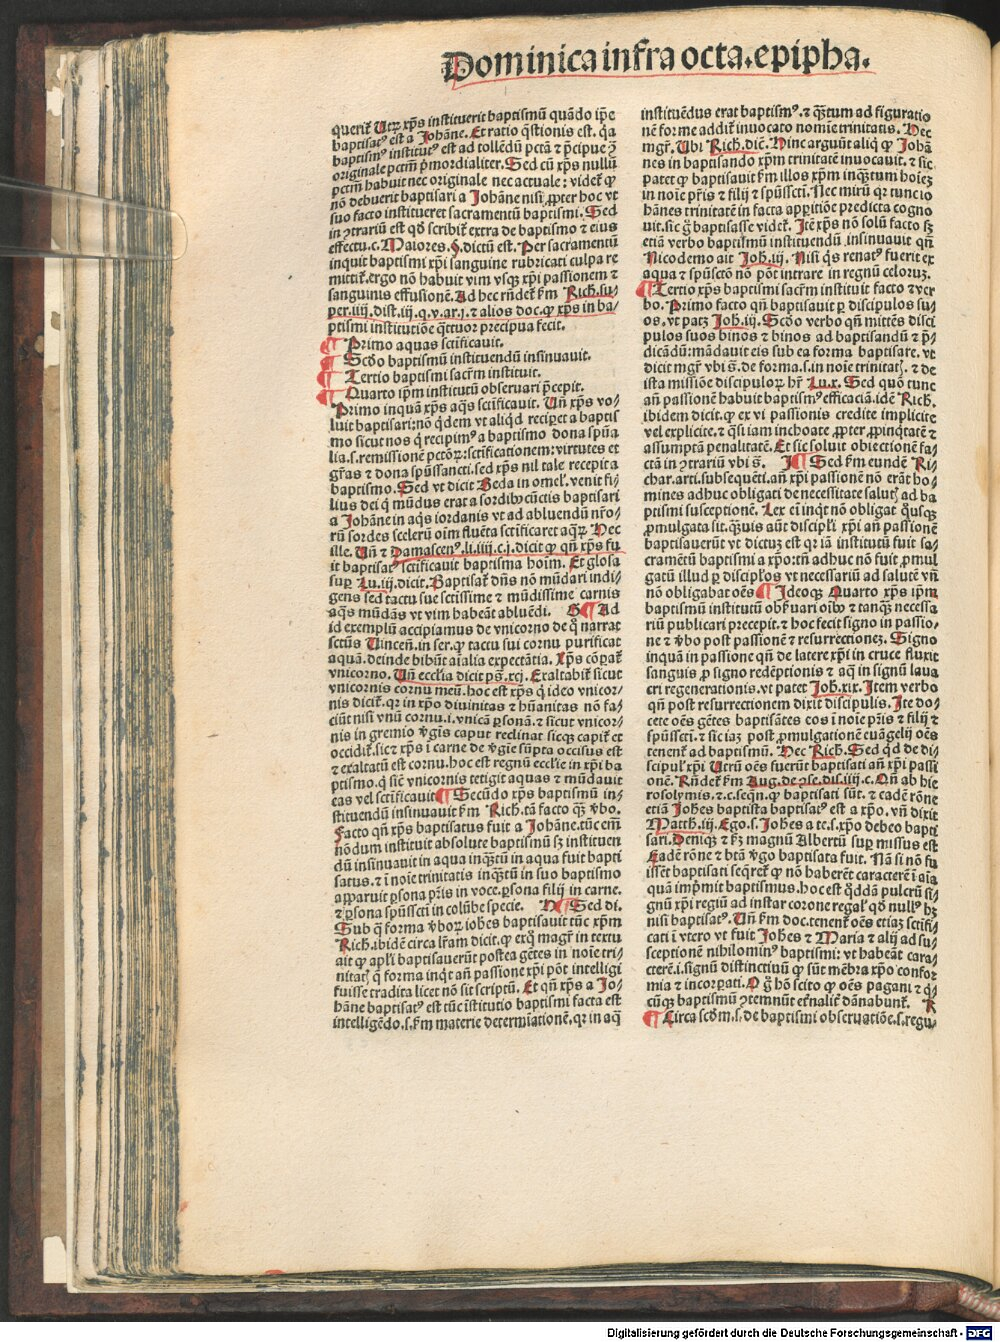 Dominica infra octa.epipha.
querit̃ Utꝝ xp̃s instituerit baptismũ quãdo ip̃e
baptisatꝰ est a Johãne. Et ratio q̃stionis est. q̃a
baptismꝰ institutꝰ est ad tollẽdũ pctã ⁊ p̃cipue ꝯ̃
originale pctm̃ p̃mordialiter. Sed cũ xp̃s nullũ
pctm̃ habuit nec originale nec actuale: videt̃ ꝙ
nõ debuerit baptisari a Johãne nisi ꝓpter hoc vt
suo facto institueret sacramentũ baptismi. Sed
in ꝯtrariũ est qđ scribit̃ extra de baptismo ⁊ eius
effectu.c. Maiores. §. dictũ est. Per sacramentũ
inquit baptismi xp̃i sanguine rubricati culpa re
mittit̃. ergo nõ habuit vim vsqꝫ xp̃i passionem ⁊
sanguinis effusionẽ. Ad hec rñdet̃ ẜm Rich. su⸗
per.iiij.dist.iij.q.v.ar.j.⁊ alios doc.ꝙ xp̃s in ba⸗
ptismi institutiõe q̃ttuor precipua fecit.
Primo aquas sctificauit.
Scđo baptismũ instituendũ insinuauit.
Tertio baptismi sacr̃m instituit.
Quarto ip̃m institutũ obseruari p̃cepit.
Primo inquã xp̃s aq̃s sctificauit. Un̄ xp̃s vo⸗
luit baptisari: nõ q̃dem vt aliqđ reciꝑet a baptis
mo sicut nos q̃ recipimꝰ a baptismo dona spũa
lia.s.remissionẽ pctõꝝ: sctificationem: virtutes et
gr̃as ⁊ dona spũssancti. sed xp̃s nil tale recepit a
baptismo. Sed vt dicit Beda in omel'. venit fi⸗
lius dei q̃ mũdus erat a sordibꝰ cũctis baptisari
a Johãne in aq̃s iordanis vt ad abluendũ nr̃o⸗
rũ sordes scelerũ oĩm fluẽta sctificaret aq̃ꝝ. Hec
ille. Un̄ ⁊ Damascenꝰ.li.iiij.c.j.dicit ꝙ qñ xp̃s fu
it baptisatꝰ sctificauit baptisma hoĩm. Et glosa
suꝑ Lu.iij.dicit. Baptisat̃ dñs nõ mũdari indi⸗
gens sed tactu sue sctissime ⁊ mũdissime carnis
aq̃s mũdãs vt vim habeãt abluẽdi. G Ad
id exemplũ accipiamus de vnicorno de q̃ narrat
sctũs Uinceñ. in ser. ꝙ tactu sui cornu purificat
aquã. deinde bibũt aĩalia expectãtia. Xp̃s cõꝑat̃
vnicorno. Un̄ eccl'ia dicit ps̃.xcj. Exaltabit̃ sicut
vnicornis cornu meũ. hoc est xp̃s q̃ ideo vnicor⸗
nis dicit̃. qꝛ in xp̃o diuinitas ⁊ hũanitas nõ fa⸗
ciũt nisi vnũ cornu.i.vnicã ꝑsonã. ⁊ sicut vnicor⸗
nis in gremio ṽgĩs caput reclinat sicqꝫ capit̃ et
occidit̃. sic ⁊ xp̃s ĩ carne de ṽgĩe sũpta occisus est
⁊ exaltatũ est cornu. hoc est regnũ eccl'ie in xp̃i ba
ptismo. q̃ sic̃ vnicornis tetigit aquas ⁊ mũdauit
eas vel sctificauit Secũdo xp̃s baptismũ in⸗
stituendũ insinuauit ẜm Rich. tã facto q̃ꝫ ṽbo.
Facto qñ xp̃s baptisatus fuit a Johãne. tũc em̃
nõdum instituit absolute baptismũ sꝫ instituen
dũ insinuauit in aqua inq̃ꝫtũ in aqua fuit bapti
satus. ⁊ ĩ noĩe trinitatis inq̃ꝫtũ in suo baptismo
apparuit ꝑsona pr̃is in voce. ꝑsona filij in carne.
⁊ ꝑsona spũsscti in colũbe specie. H Sed di.
Sub q̃ forma ṽboꝝ iohẽs baptisauit tũc xp̃m
Rich. ibidẽ circa lr̃am dicit. ꝙ exq̃ magr̃ in textu
ait ꝙ apl'i baptisauerũt postea gẽtes in noĩe tri⸗
nitatꝭ q̃ forma inq̃t añ passionẽ xp̃i põt intelligi
fuisse tradita licet nõ sit scriptũ. Et qñ xp̃s a Jo⸗
hãne baptisatꝰ est tũc ĩstitutio baptismi facta est
intelligẽdo.s.ẜm materie determĩationẽ. qꝛ in aq̃
instituẽdus erat baptismꝰ. ⁊ q̃ꝫtum ad figuratio
nẽ forme addit̃ inuocato nomĩe trinitatis. Hec
mgr̃. Ubi Rich. dic̃. Hinc arguũt aliq̃ ꝙ Johã
nes in baptisando xp̃m trinitatẽ inuocauit. ⁊ sic
patet ꝙ baptisauit ẜm illos xp̃m inq̃ꝫtum hoĩeꝫ
in noĩe pr̃is ⁊ filij ⁊ spũsscti. Nec mirũ qꝛ tunc io
hãnes trinitatẽ in facta apꝑitiõe predicta cogno
uit. sic g̃ baptisasse videt̃. Itẽ xp̃s nõ solũ facto sꝫ
etiã verbo baptismũ instituendũ insinuauit qñ
Nicodemo ait Joh.iij. Nisi q̃s renatꝰ fuerit ex
aqua ⁊ spũscto nõ põt intrare in regnũ celoꝝ.
Tertio xp̃s baptismi sacr̃m instituit facto ⁊ ver
bo. Primo facto qñ baptisauit ꝑ discipulos su⸗
os. vt patꝫ Joh.iij. Scđo verbo qñ mittẽs disci
pulos suos binos ⁊ binos ad baptisandũ ⁊ p̃⸗
dicãdũ: mãdauit eis sub ea forma baptisare. vt
dicit mgr̃ vbi s̃. de forma.s.in noĩe trinitatꝭ. ⁊ de
ista missiõe discipuloꝝ hr̃ Lu.x. Sed quõ tunc
añ passionẽ habuit baptismꝰ efficaciã. idẽ Rich.
ibidem dicit. ꝙ ex vi passionis credite implicite
vel explicite. ⁊ q̃si iam inchoate ꝓpter ꝓpinq̃tatẽ ⁊
assumptã penalitatẽ. Et sic soluit obiectionẽ fa⸗
ctã in ꝯtrariũ vbi s̃. J Sed ẜm eundẽ Ri⸗
char.arti.subsequẽti. añ xp̃i passionẽ nõ erãt ho⸗
mines adhuc obligati de necessitate salutꝭ ad ba
ptismi susceptionẽ. Lex eĩ inq̃t nõ obligat q̃usqꝫ
ꝓmulgata sit. q̃uis aũt discipl'i xp̃i añ passionẽ
baptisauerũt vt dictuꝫ est qꝛ iã institutũ fuit sa⸗
cramẽtũ baptismi a xp̃o: tñ adhuc nõ fuit ꝓmul
gatũ illud ꝑ discipl'os vt necessariũ ad salutẽ vñ
nõ obligabat oẽs Ideoqꝫ Quarto xp̃s ip̃m
baptismũ institutũ obẜuari oĩbꝰ ⁊ tanq̃ꝫ necessa
riũ publicari precepit. ⁊ hoc fecit signo in passio⸗
ne ⁊ ṽbo post passionẽ ⁊ resurrectioneꝫ. Signo
inquã in passione qñ de latere xp̃i in cruce fluxit
sanguis ꝓ signo redẽptionis ⁊ aq̃ in signũ laua
cri regenerationis. vt patet Joh.xix. Item verbo
qñ post resurrectionem dixit discipulis. Ite do⸗
cete oẽs gẽtes baptisãtes eos ĩ noĩe pr̃is ⁊ filij ⁊
spũsscti. ⁊ sic iaꝫ post ꝓmulgationeꝫ euãgelij oẽs
tenent̃ ad baptismũ. Hec Rich. Sed q̃d de di⸗
scipul' xp̃i. Utrũ oẽs fuerũt baptisati añ xp̃i passi
onẽ. Rñdet̃ ẜm Aug. de ꝯse. dis.iiij.c. Qñ ab hie
rosolymis. ⁊.c.seq̃n. ꝙ baptisati sũt. ⁊ eadẽ rõne
etiã Johẽs baptista baptisatꝰ est a xp̃o. vñ dixit
Matth.iij. Ego.s.Johẽs a te.s.xp̃o debeo bapti
sari. Deniqꝫ ⁊ ẜꝫ magnũ Albertũ suꝑ missus est
Eadẽ rõne ⁊ btã ṽgo baptisata fuit. Nã si nõ fu
isset baptisati seq̃ret̃ ꝙ nõ haberẽt caracterẽ ĩ aĩa
quã imp̃mit baptismus. hoc est q̃ddã pulcrũ si⸗
gnũ xp̃i regiũ ad instar corone regal' qđ nullꝰ hꝫ
nisi baptisatꝰ. Un̄ ẜm doc. tenent̃ oẽs etiaꝫ sctifi⸗
cati ĩ vtero vt fuit Johẽs ⁊ Maria ⁊ alij ad su⸗
sceptionẽ nihilominꝰ baptismi: vt habeãt cara⸗
cterẽ.i.signũ distinctiuũ ꝙ sũt mẽbra xp̃o confor
mia ⁊ incorꝑati. O g̃ hõ scito ꝙ oẽs pagani ⁊ q̃⸗
cũqꝫ baptismũ ꝯtemnũt et̃nalit̃ dãnabunt̃. K
Circa scđm.s.de baptismi obseruatiõe.s.regu⸗
Digitalisierung gefördert durch die Deutsche Forschungsgemeinschaft - DFG